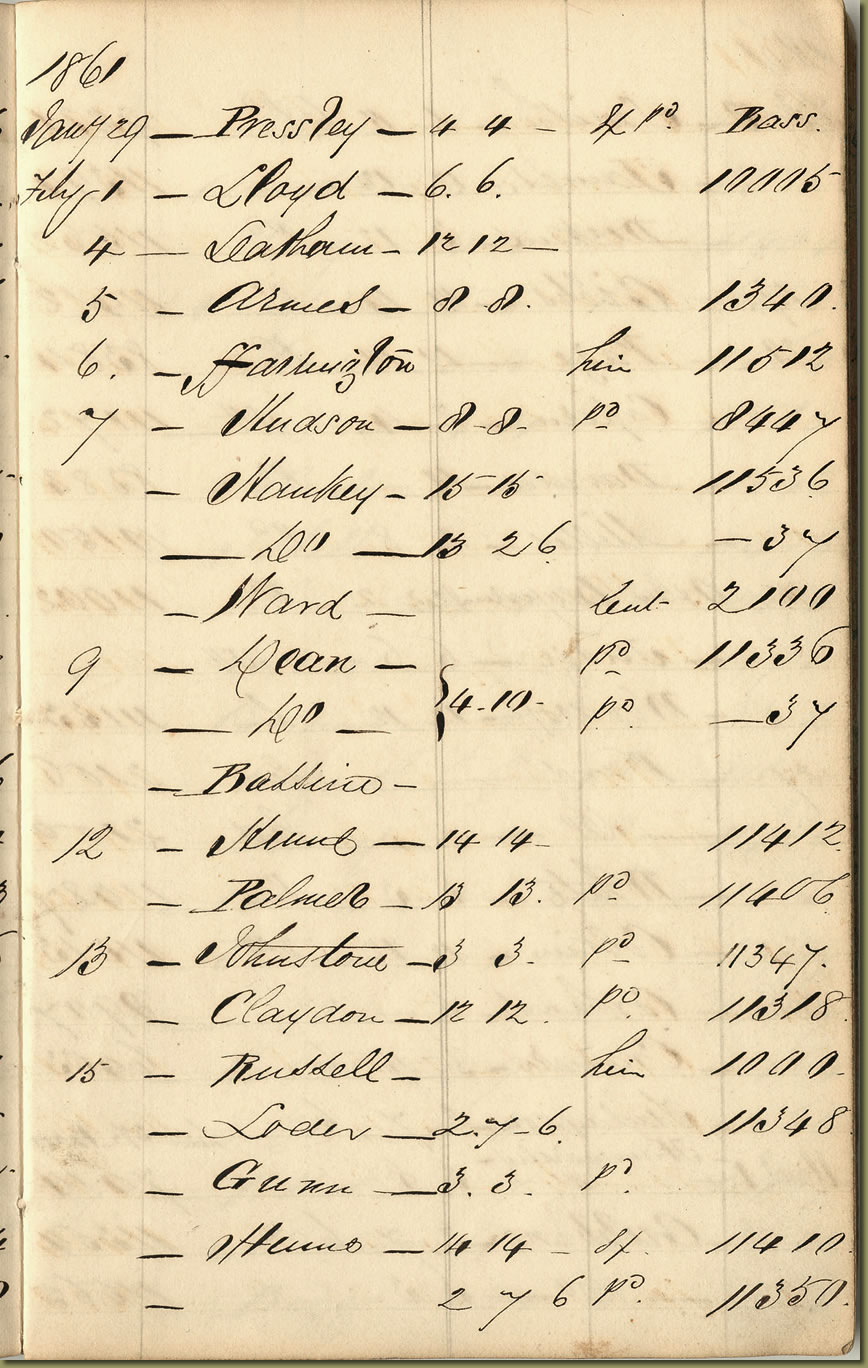 1861
Jany 29 — Pressley — 4 4 — & pd. Bass.
Feby 1 — Lloyd — 6. 6. 10005
4 — Leatham — 12 12 —
5 — Armes — 8 8. 1340.
6. — Farmington hire 11512
7 — Hudson — 8-8- pd 8447
— Hankey — 15 15 11536
— Do — 13 2 6 — 37
— Ward — lent 2100
9 — Dean — pd 11336
— Do — } 4-10- pd. — 37
— —
12 — — 14 14 - 11412
— Palmer — 13 13. pd 11406
13 — Johnstone — 3 3. pd 11347.
— Claydon — 12 12. pd. 11318
15 — Russell — hire 1000-
— Loder — 2.7-6. 11348
— Gunn — 3. 3. pd.
— — 14 14 - 11410
— 2 7 6 pd. 11350.